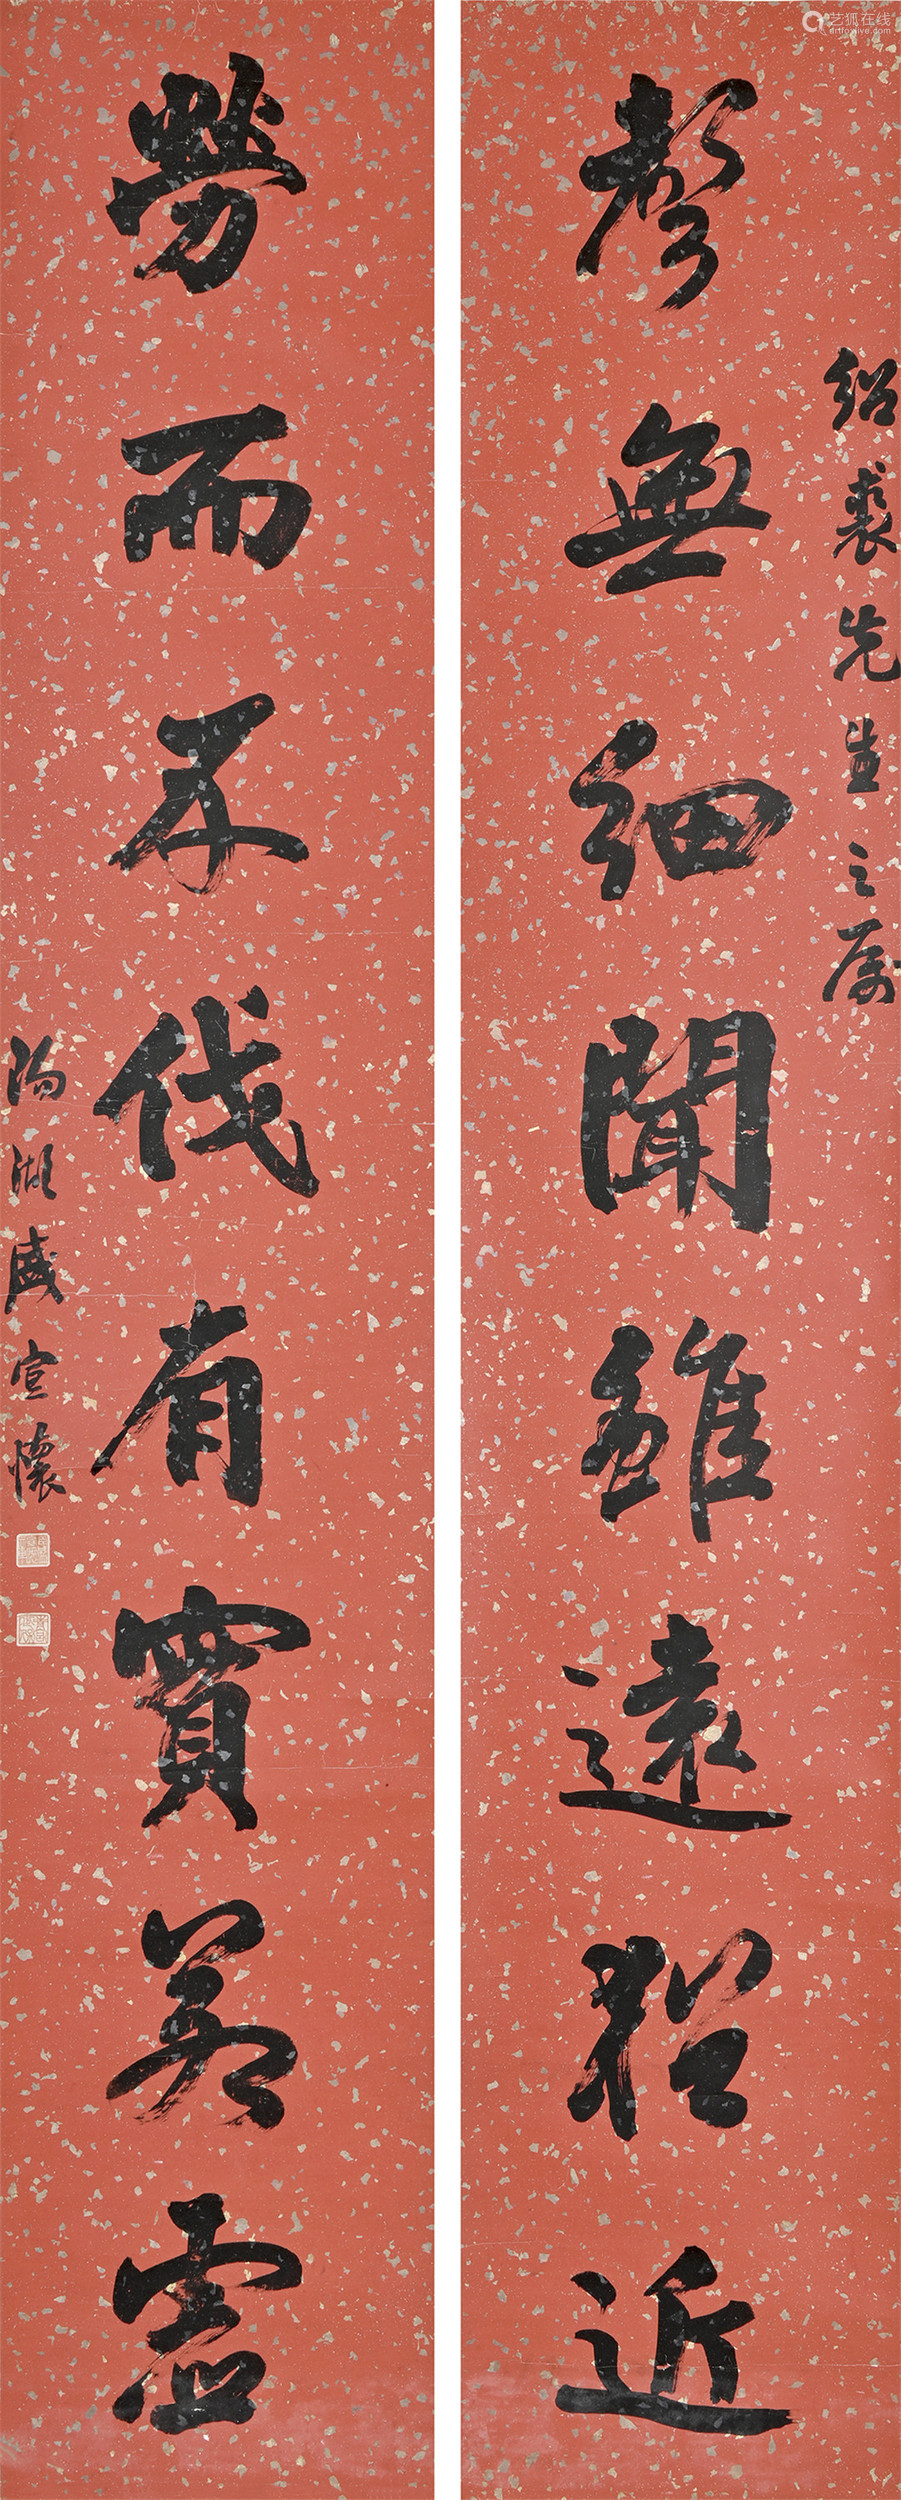 紹裘先生之屬
聲無細聞雖遠猶近
勞而不伐有實若虛
陽湖盛宣懷
艺狐在线
artfoxlive.com